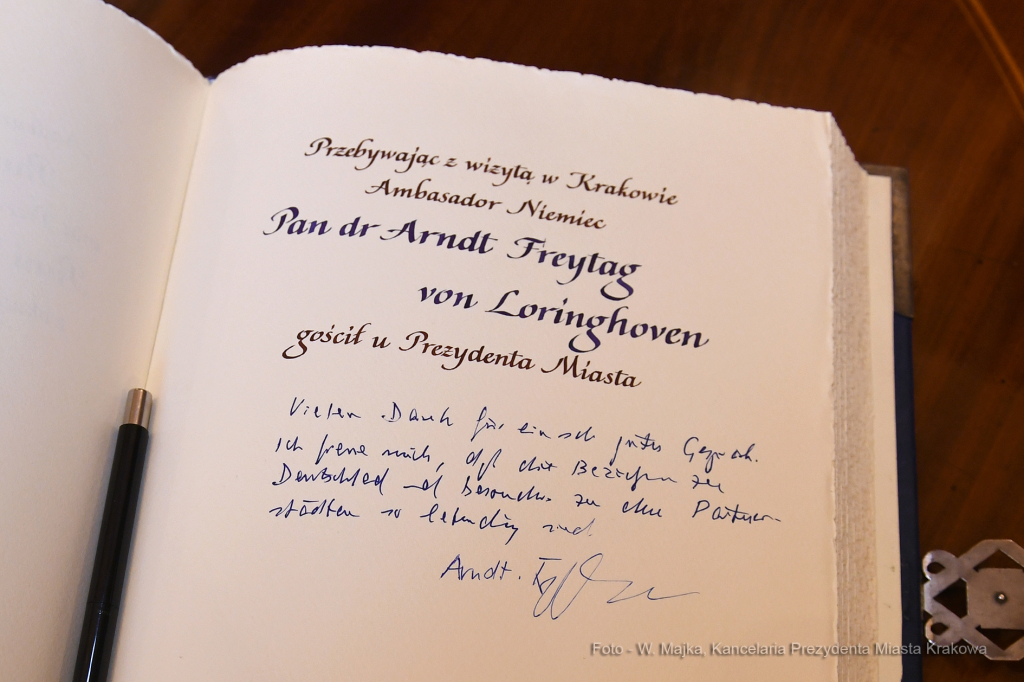 Przebywając z wizytą w Krakowie
Ambasador Niemiec
Pan dr Arndt Freytag
von Loringhoven
gościł u Prezydenta Miasta
Vielen Dank für ein sehr gutes Gespräch.
Ich freue mich, daß die Beziehungen zu
Deutschland und besonders zu den Partner-
städten so lebendig sind.
Arndt. F
Foto - W. Majka, Kancelaria Prezydenta Miasta Krakowa